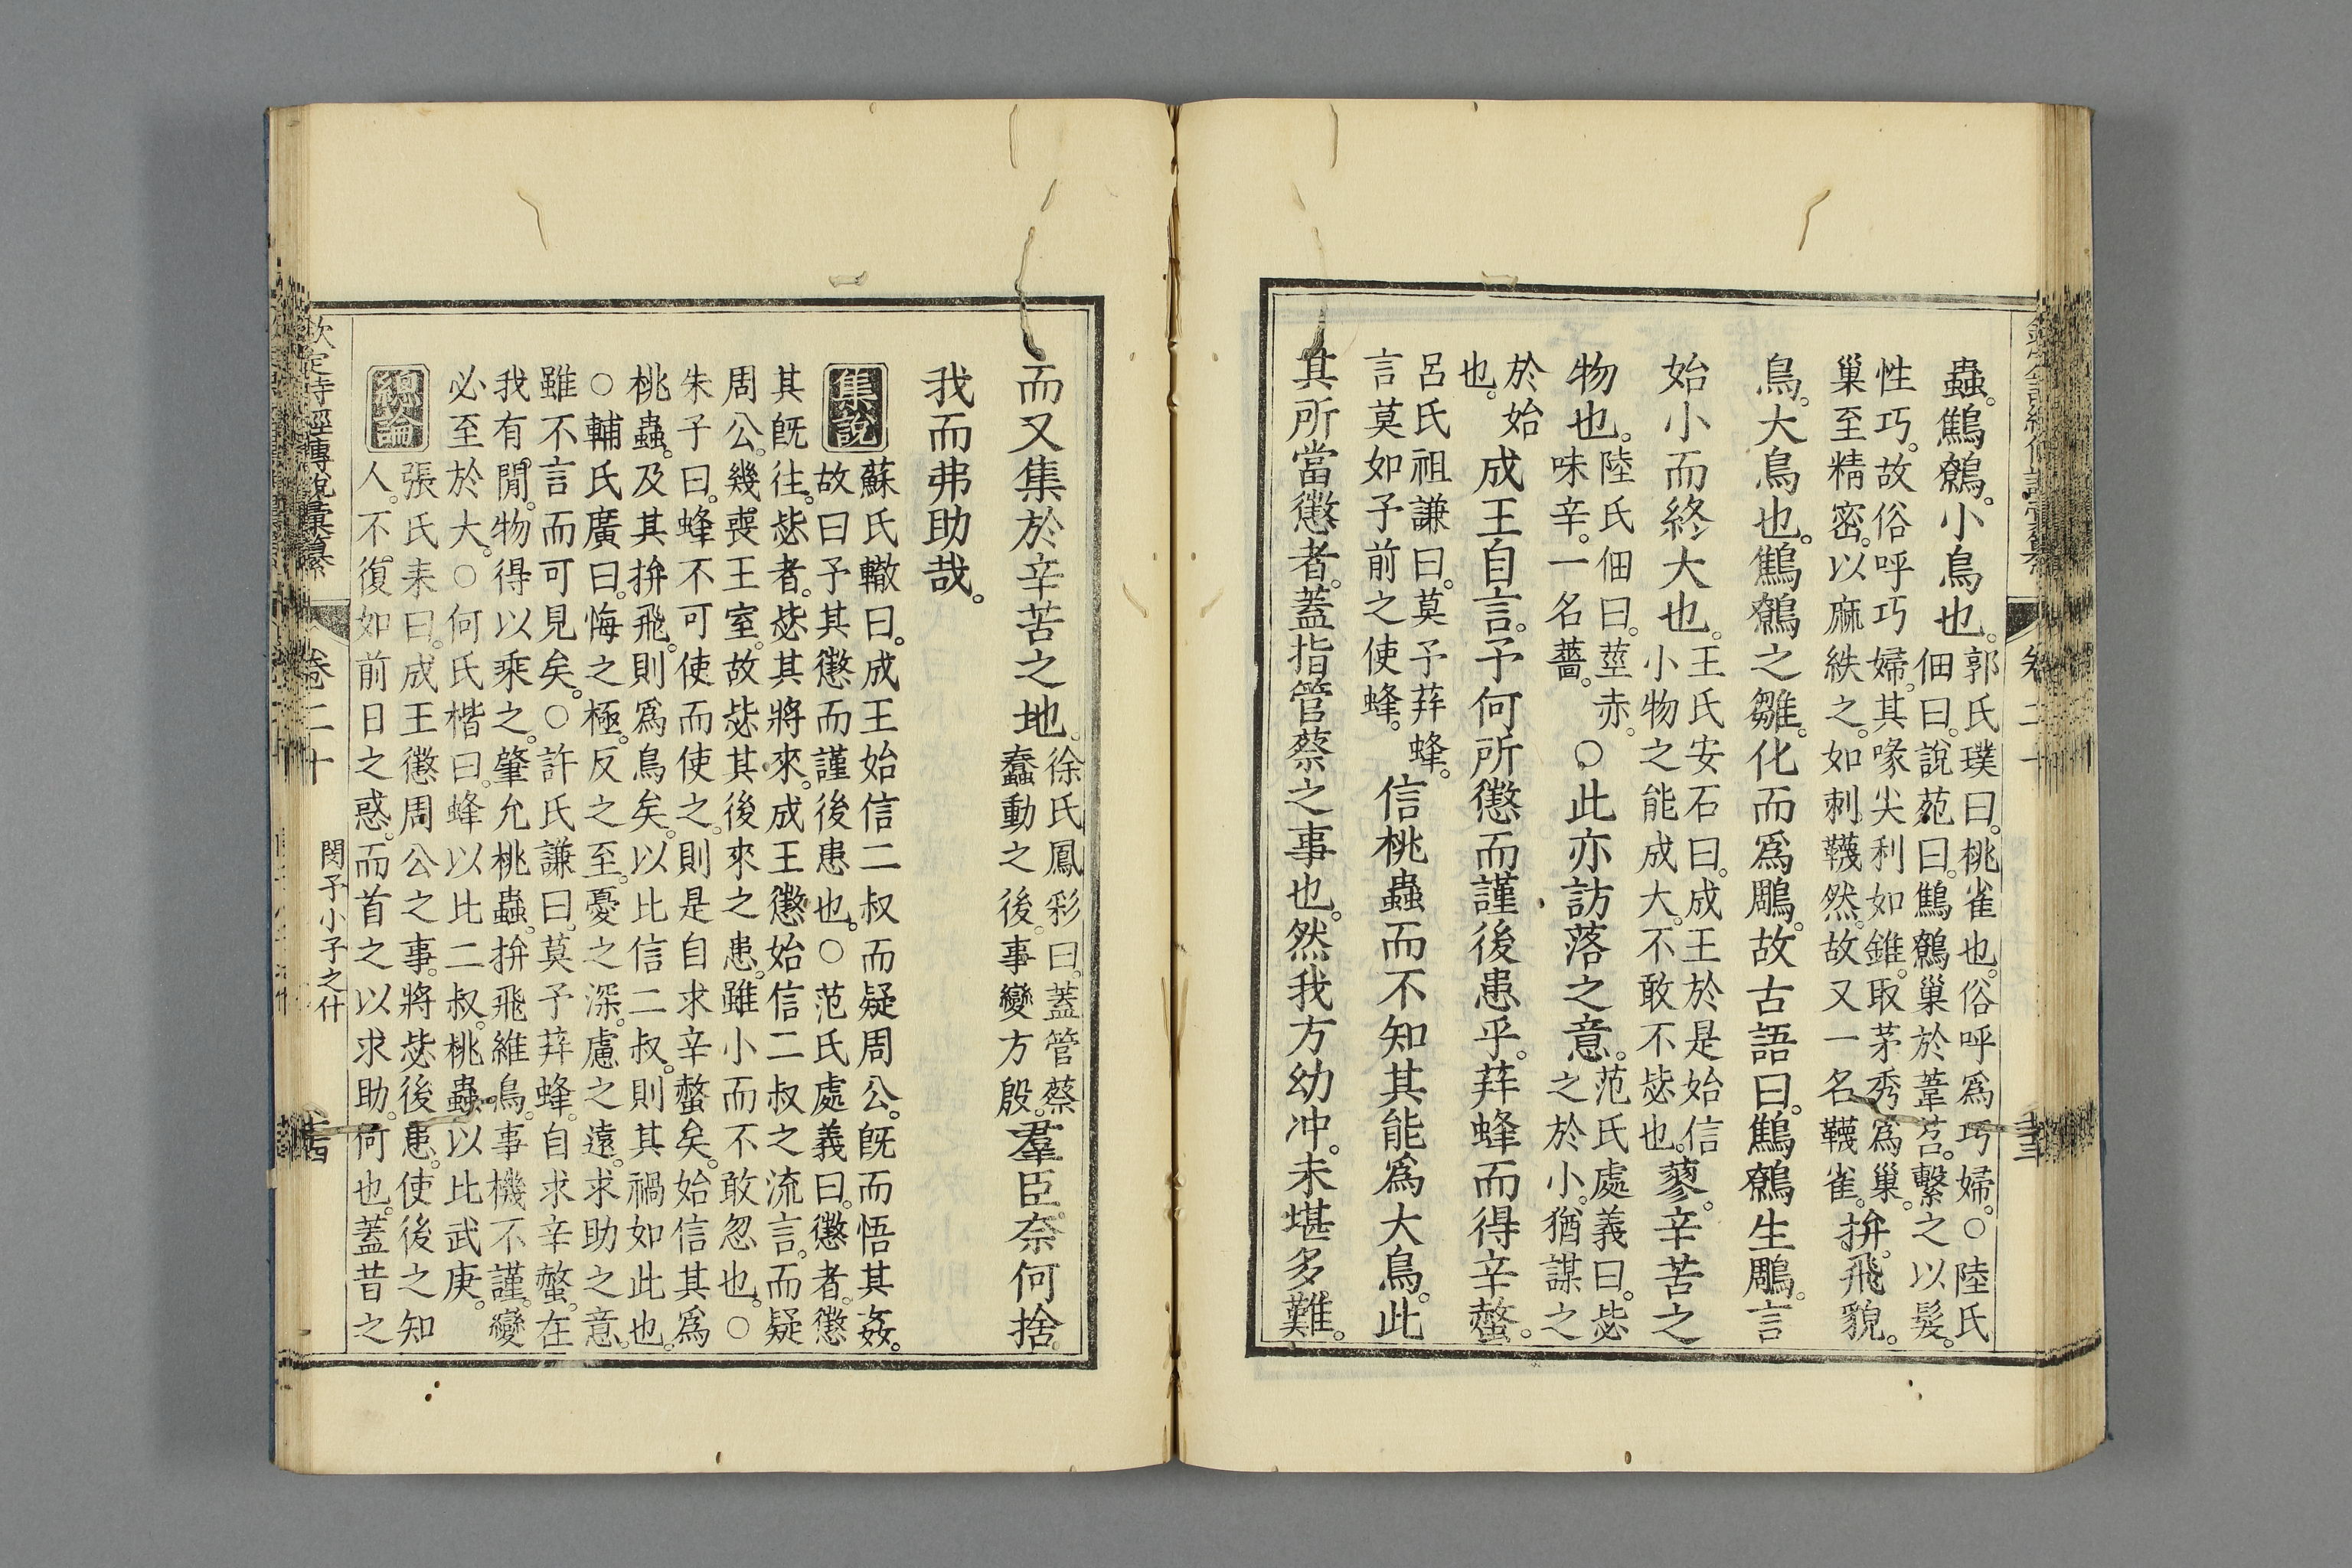 蟲。鷦鷯。小鳥也。郭氏璞曰。桃雀也。俗呼爲巧婦。○陸氏
佃曰。說苑曰。鷦鷯巢於葦苕。繫之以髮。
性巧。故俗呼巧婦。其喙尖利如錐。取茅秀爲巢。
巢至精密。以麻紩之。如刺韈然。故又一名韈雀。拚飛貌。
鳥。大鳥也。鷦鷯之雛。化而爲鵰。故古語曰。鷦鷯生鵰。言
始小而終大也。王氏安石曰。成王於是始信
小物之能成大。不敢不毖也。蓼。辛苦之
物也。陸氏佃曰。莖赤。
味辛。一名薔。○此亦訪落之意。范氏處義曰。毖
之於小。猶謀之
於始
也。成王自言。予何所懲而謹後患乎。荓蜂而得辛螫。
呂氏祖謙曰。莫予荓蜂。
言莫如予前之使蜂。信桃蟲而不知其能爲大鳥。此
其所當懲者。蓋指管蔡之事也。然我方幼冲。未堪多難。
而又集於辛苦之地。徐氏鳳彩曰。蓋管蔡
蠢動之後。事變方殷。羣臣奈何捨
我而弗助哉。
集說
蘇氏轍曰。成王始信二叔而疑周公。旣而悟其姦。
故曰予其懲而謹後患也。○范氏處義曰。懲者。懲
其旣往。毖者。毖其將來。成王懲始信二叔之流言。而疑
周公。幾喪王室。故毖其後來之患。雖小而不敢忽也。○
朱子曰。蜂不可使而使之。則是自求辛螫矣。始信其爲
桃蟲。及其拚飛。則爲鳥矣。以比信二叔。則其禍如此也。
○輔氏廣曰。悔之極。反之至。憂之深。慮之遠。求助之意。
雖不言而可見矣。○許氏謙曰。莫予荓蜂。自求辛螫。在
我有閒。物得以乘之。肇允桃蟲。拚飛維鳥。事機不謹。變
必至於大。○何氏楷曰。蜂以比二叔。桃蟲以比武庚。
總論
張氏耒曰。成王懲周公之事。將毖後患。使後之知
人。不復如前日之惑。而首之以求助。何也。蓋昔之
欽定詩經傳說彙纂
卷二十
閔予小子之什